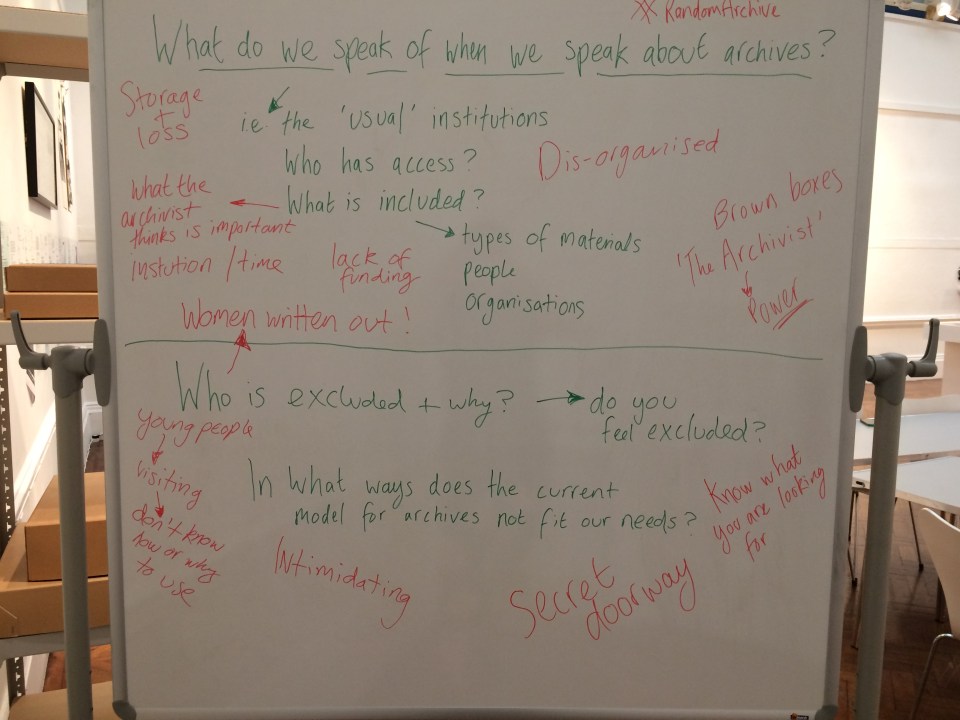 ※ RandomArchive
What do we speak of when we speak about archives?
Storage
+
loss
i.e. the 'usual' institutions
Who has access?
Dis-organised
What is included?
what the
archivist
thinks is important
Instution / time
types of materials
people
organisations
lack of
funding
Brown boxes
'The Archivist'
Power
Women written out!
Who is excluded + why?
do you
feel excluded?
young people
visiting
don't know
how or why
to use
In what ways does the current
model for archives not fit our needs?
Know what
you are looking
for
Intimidating
Secret
doorway